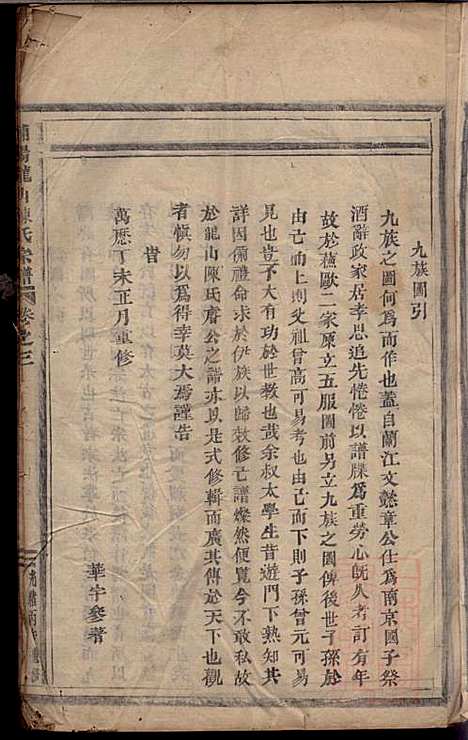 九族圖引
九族之圖何爲而作也蓋自蘭江文懿章公仕爲南京國子祭
酒辭政家居孝思追先惓惓以譜牒爲重勞心旣久考訂有年
故於蘓歐二家原立五服圖前另立九族之圖俾後世子孫於
由己而上則父祖曾高可易考也由己而下則子孫曾元可易
見也豈不大有功於世教也哉余叔太學生昔遊門下熟知其
詳因備禮命求於伊族以歸效修亡譜燦然便覽今不敢私故
於龍山陳氏睿公之譜亦以是式修輯而廣其傳於天下也觀
者愼勿以爲得幸莫大焉謹告
旹
萬歷丁未正月重修
華宇參著
陽龍山陳氏宗譜 卷之三